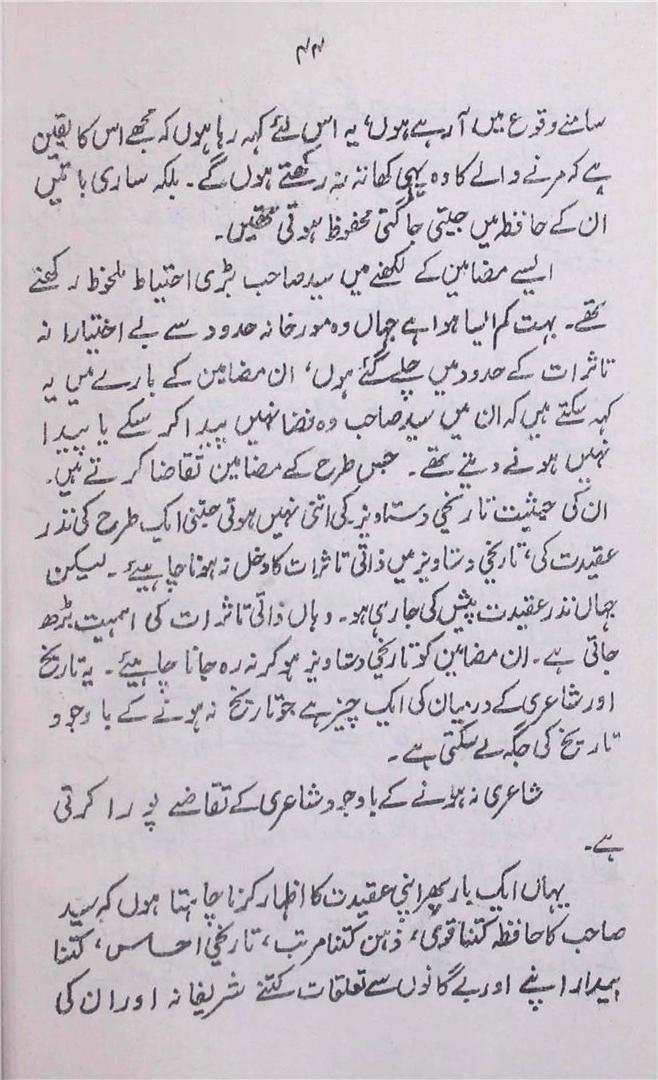 ۴۴
سامنے وقوع میں آ رہے ہوں، یہ اس لئے کہہ رہا ہوں کہ مجھے اس کا یقین
ہے کہ مرنے والے کا وہ بہی کھاتہ نہ رکھتے ہوں گے۔ بلکہ ساری باتیں
ان کے حافظہ میں جیتی جاگتی محفوظ ہوتی تھیں۔
ایسے مضامین کے لکھنے میں سید صاحب بڑی احتیاط ملحوظ رکھتے
تھے۔ بہت کم ایسا ہوا ہے جہاں وہ مورخانہ حدود سے بے اختیارانہ
تاثرات کے حدود میں چلے گئے ہوں، ان مضامین کے بارے میں یہ
کہہ سکتے ہیں کہ ان میں سید صاحب وہ فضا نہیں پیدا کر سکے یا پیدا
نہیں ہونے دیتے تھے۔ جس طرح کے مضامین تقاضا کرتے ہیں۔
ان کی حیثیت تاریخی دستاویز کی اتنی نہیں ہوتی جتنی ایک طرح کی نذر
عقیدت کی، تاریخی دستاویز میں ذاتی تاثرات کا دخل نہ ہونا چاہیئے۔ لیکن
جہاں نذر عقیدت پیش کی جا رہی ہو۔ وہاں ذاتی تاثرات کی اہمیت بڑھ
جاتی ہے۔ ان مضامین کو تاریخی دستاویز ہو کر نہ رہ جانا چاہیئے۔ یہ تاریخ
اور شاعری کے درمیان کی ایک چیز ہے جو تاریخ نہ ہونے کے باوجود
تاریخ کی جگہ لے سکتی ہے۔
شاعری نہ ہونے کے باوجود شاعری کے تقاضے پورا کرتی
ہے۔
یہاں ایک بار پھر اپنی عقیدت کا اظہار کرنا چاہتا ہوں کہ سید
صاحب کا حافظہ کتنا قوی، ذہن کتنا مرتب، تاریخی احساس، کتنا
بیدار اپنے اور بے گانوں سے تعلقات کتنے شریفانہ اور ان کی